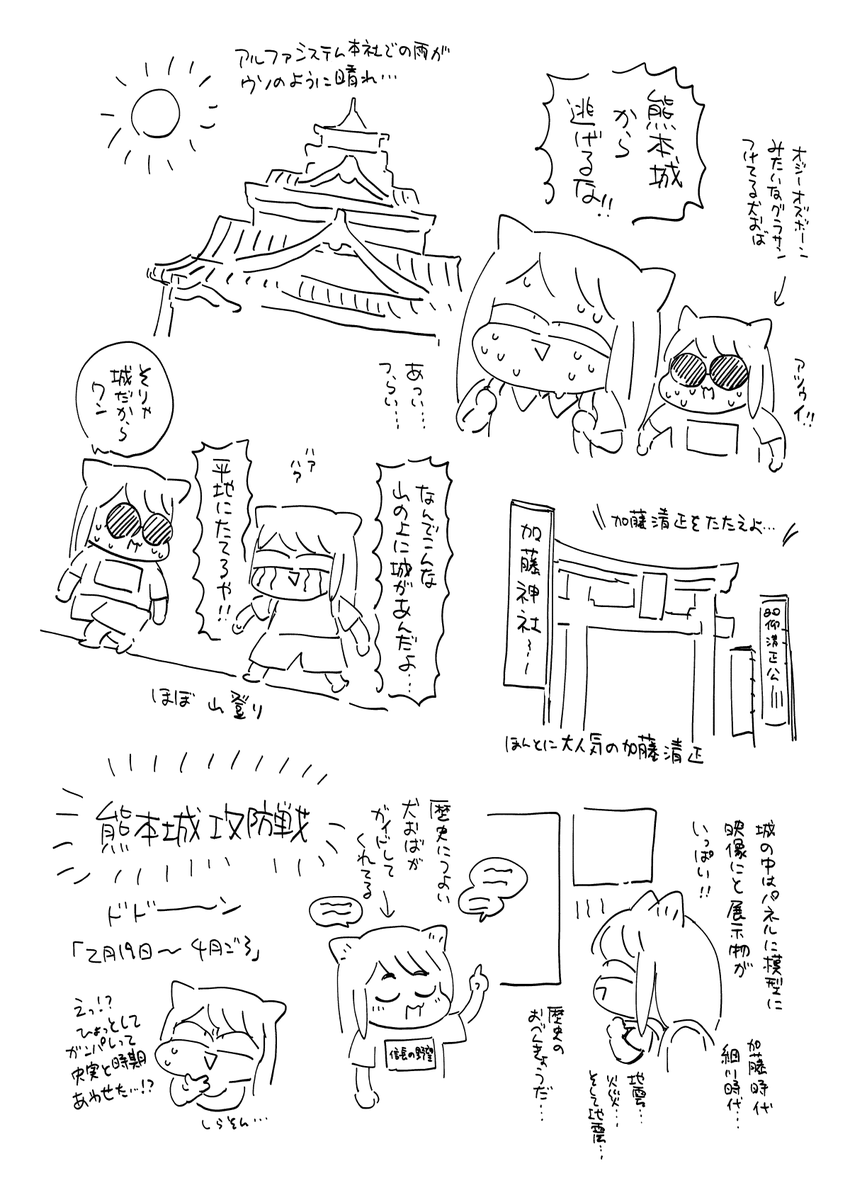 アルファシステム本社での雨が
ウソのように晴れ…
熊本城
から
逃げるな!!
オジーオズボーン
みたいなグラサン
つけてる犬おば
アツゥイ!!
あつい…
つらい…
なんでこんな
山の上に城があんだよ…
ハァ
ハァ
平地にたてろや!!
そりゃ
城だから
ワン
ほぼ山登り
加藤清正をたたえよ…
加藤神社〜
清正公
ほんとに大人気の加藤清正
熊本城攻防戦
ドドーーン
「2月19日〜4月ごろ」
えっ!?
ひょっとして
ガンパレって
史実と時期
あわせた…!?
しらそん…
歴史につよい
犬おばが
ガイドして
くれてる
信長の野望
城の中はパネルに模型に
映像にと展示物が
いっぱい!!
加藤時代
細川時代…
地震…
火災…
そして地震…
歴史の
おべんきょうだ…